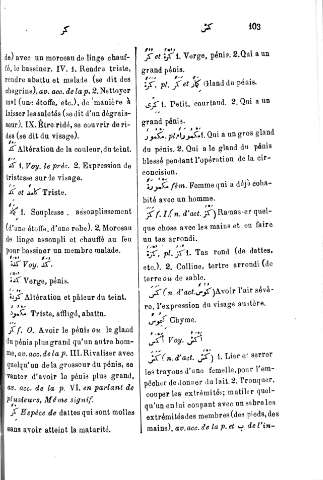 كمر
كمش
103
de) avec un morceau de linge chauf-
fé, le bassiner. IV. 1. Rendre triste,
rendre abattu et malade (se dit des
chagrins), av. acc. de la p. 2. Nettoyer
mal (une étoffe, etc.), de manière à
laisser les saletés (se dit d'un dégrais-
seur). IX. Être ridé, se couvrir de ri-
des (se dit du visage).
Altération de la couleur, du teint.
1. Voy. le préc. 2. Expression de
tristesse sur le visage.
et Triste.
1. Souplesse, assouplissement
(d'une étoffe, d'une robe). 2. Morceau
de linge assoupli et chauffé au feu
pour bassiner un membre malade.
Voy.
Verge, pénis.
Altération et pâleur du teint.
Triste, affligé, abattu.
f. O. Avoir le pénis ou le gland
du pénis plus grand qu'un autre hom-
me, av. acc. de la p. III. Rivaliser avec
quelqu'un de la grosseur du pénis, se
vanter d'avoir le pénis plus grand,
av. acc. de la p. VI. en parlant de
plusieurs, Même signif.
Espèce de dattes qui sont molles
sans avoir atteint la maturité.
et 1. Verge, pénis. 2. Qui a un
grand pénis.
pl. et Gland du pénis.
1. Petit, courtaud. 2. Qui a un
grand pénis.
pl. 1. Qui a un gros gland
du pénis. 2. Qui a le gland du pénis
blessé pendant l'opération de la cir-
concision.
fém. Femme qui a déjà coha-
bité avec un homme.
f. I. (n. d'act. ) Ramasser quel-
que chose avec les mains et en faire
un tas arrondi.
pl. 1. Tas rond (de dattes,
etc.). 2. Colline, tertre arrondi (de
terre ou de sable.
(n. d'act. ) Avoir l'air sévè-
re, l'expression du visage austère.
Chyme.
Voy.
(n. d'act. ) 1. Lier et serrer
les trayons d'une femelle, pour l'em-
pêcher de donner du lait 2. Tronquer,
couper les extrémités; mutiler quel-
qu'un en lui coupant avec un sabre les
extrémités des membres (des pieds, des
mains), av. acc. de la p. et ب de l'in-